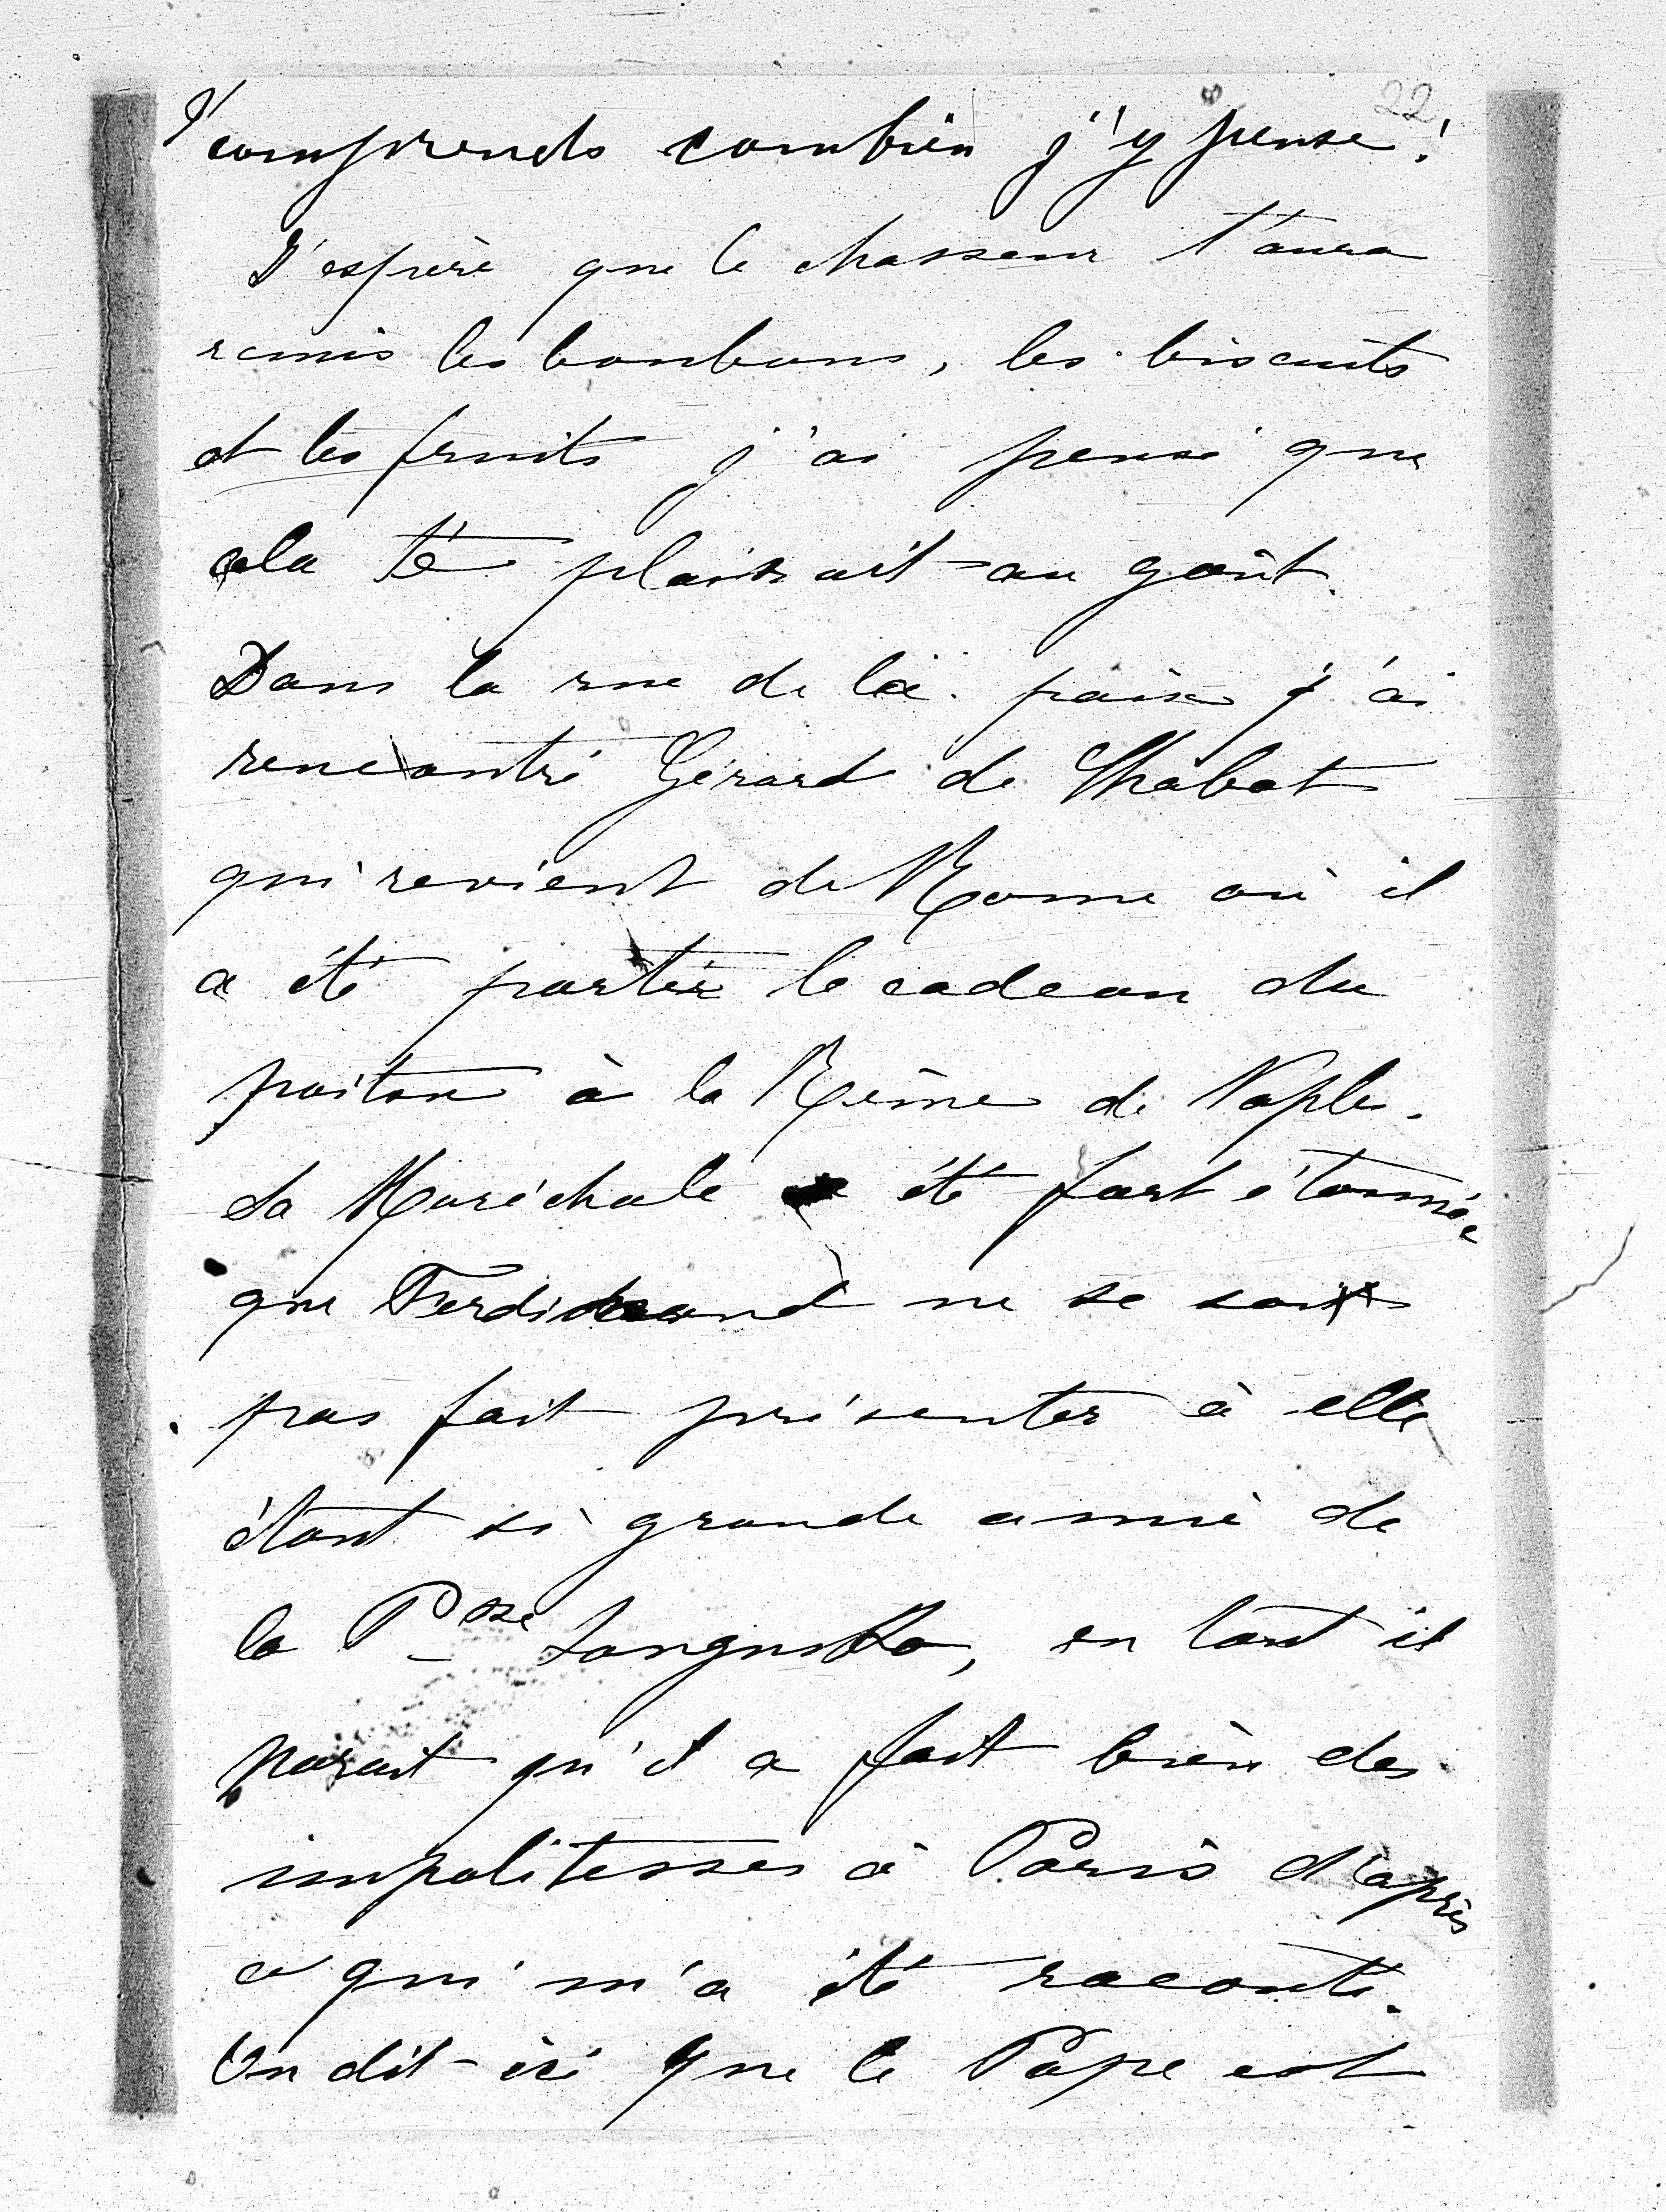 22
comprends combien j'y pense !
J'espère que le chasseur t'aura
remis les bonbons, les biscuits
et les fruits j'ai pensé que
cela te plairait au goût.
Dans la rue de la paix j'ai
rencontré Gérard de Chabot
qui revient de Rome où il
a été porter le cadeau du
poitou à la Reine de Naples.
La Maréchale a été fort étonnée
que Ferdinand ne se soit
pas fait présenter à elle
étant si grande amie de
la Psse Sangusko, en tout il
parait qu'il a fait bien des
impolitesses à Paris d'après
ce qui m'a été raconté.
On dit ici que le Pape est